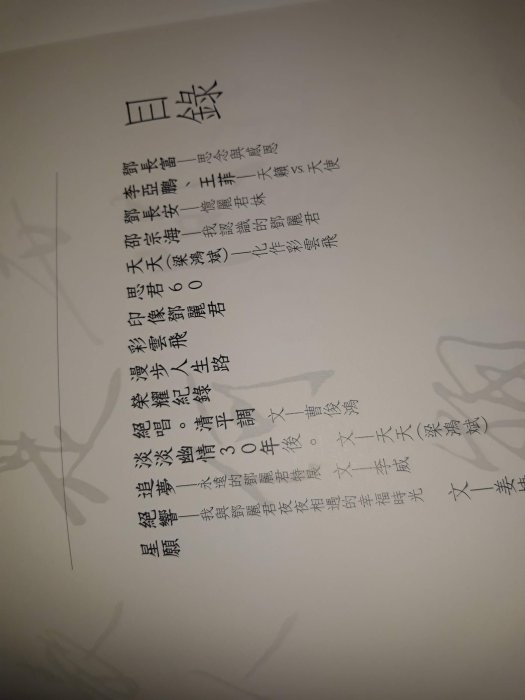 目錄
鄧長富—思念與感恩
李亞鵬、王菲—天籟vs天使
鄧長安—憶麗君妹
邵宗海—我認識的鄧麗君
天天(梁鴻斌)—化作彩雲飛
思君60
印像鄧麗君
彩雲飛
漫步人生路
榮耀紀錄
絕唱。清平調 文—曹俊鴻
淡淡幽情30年後。 文—天天(梁鴻斌)
追夢—永遠的鄧麗君特展 文—李威
絕響—我與鄧麗君夜夜相遇的幸福時光 文—姜
星願